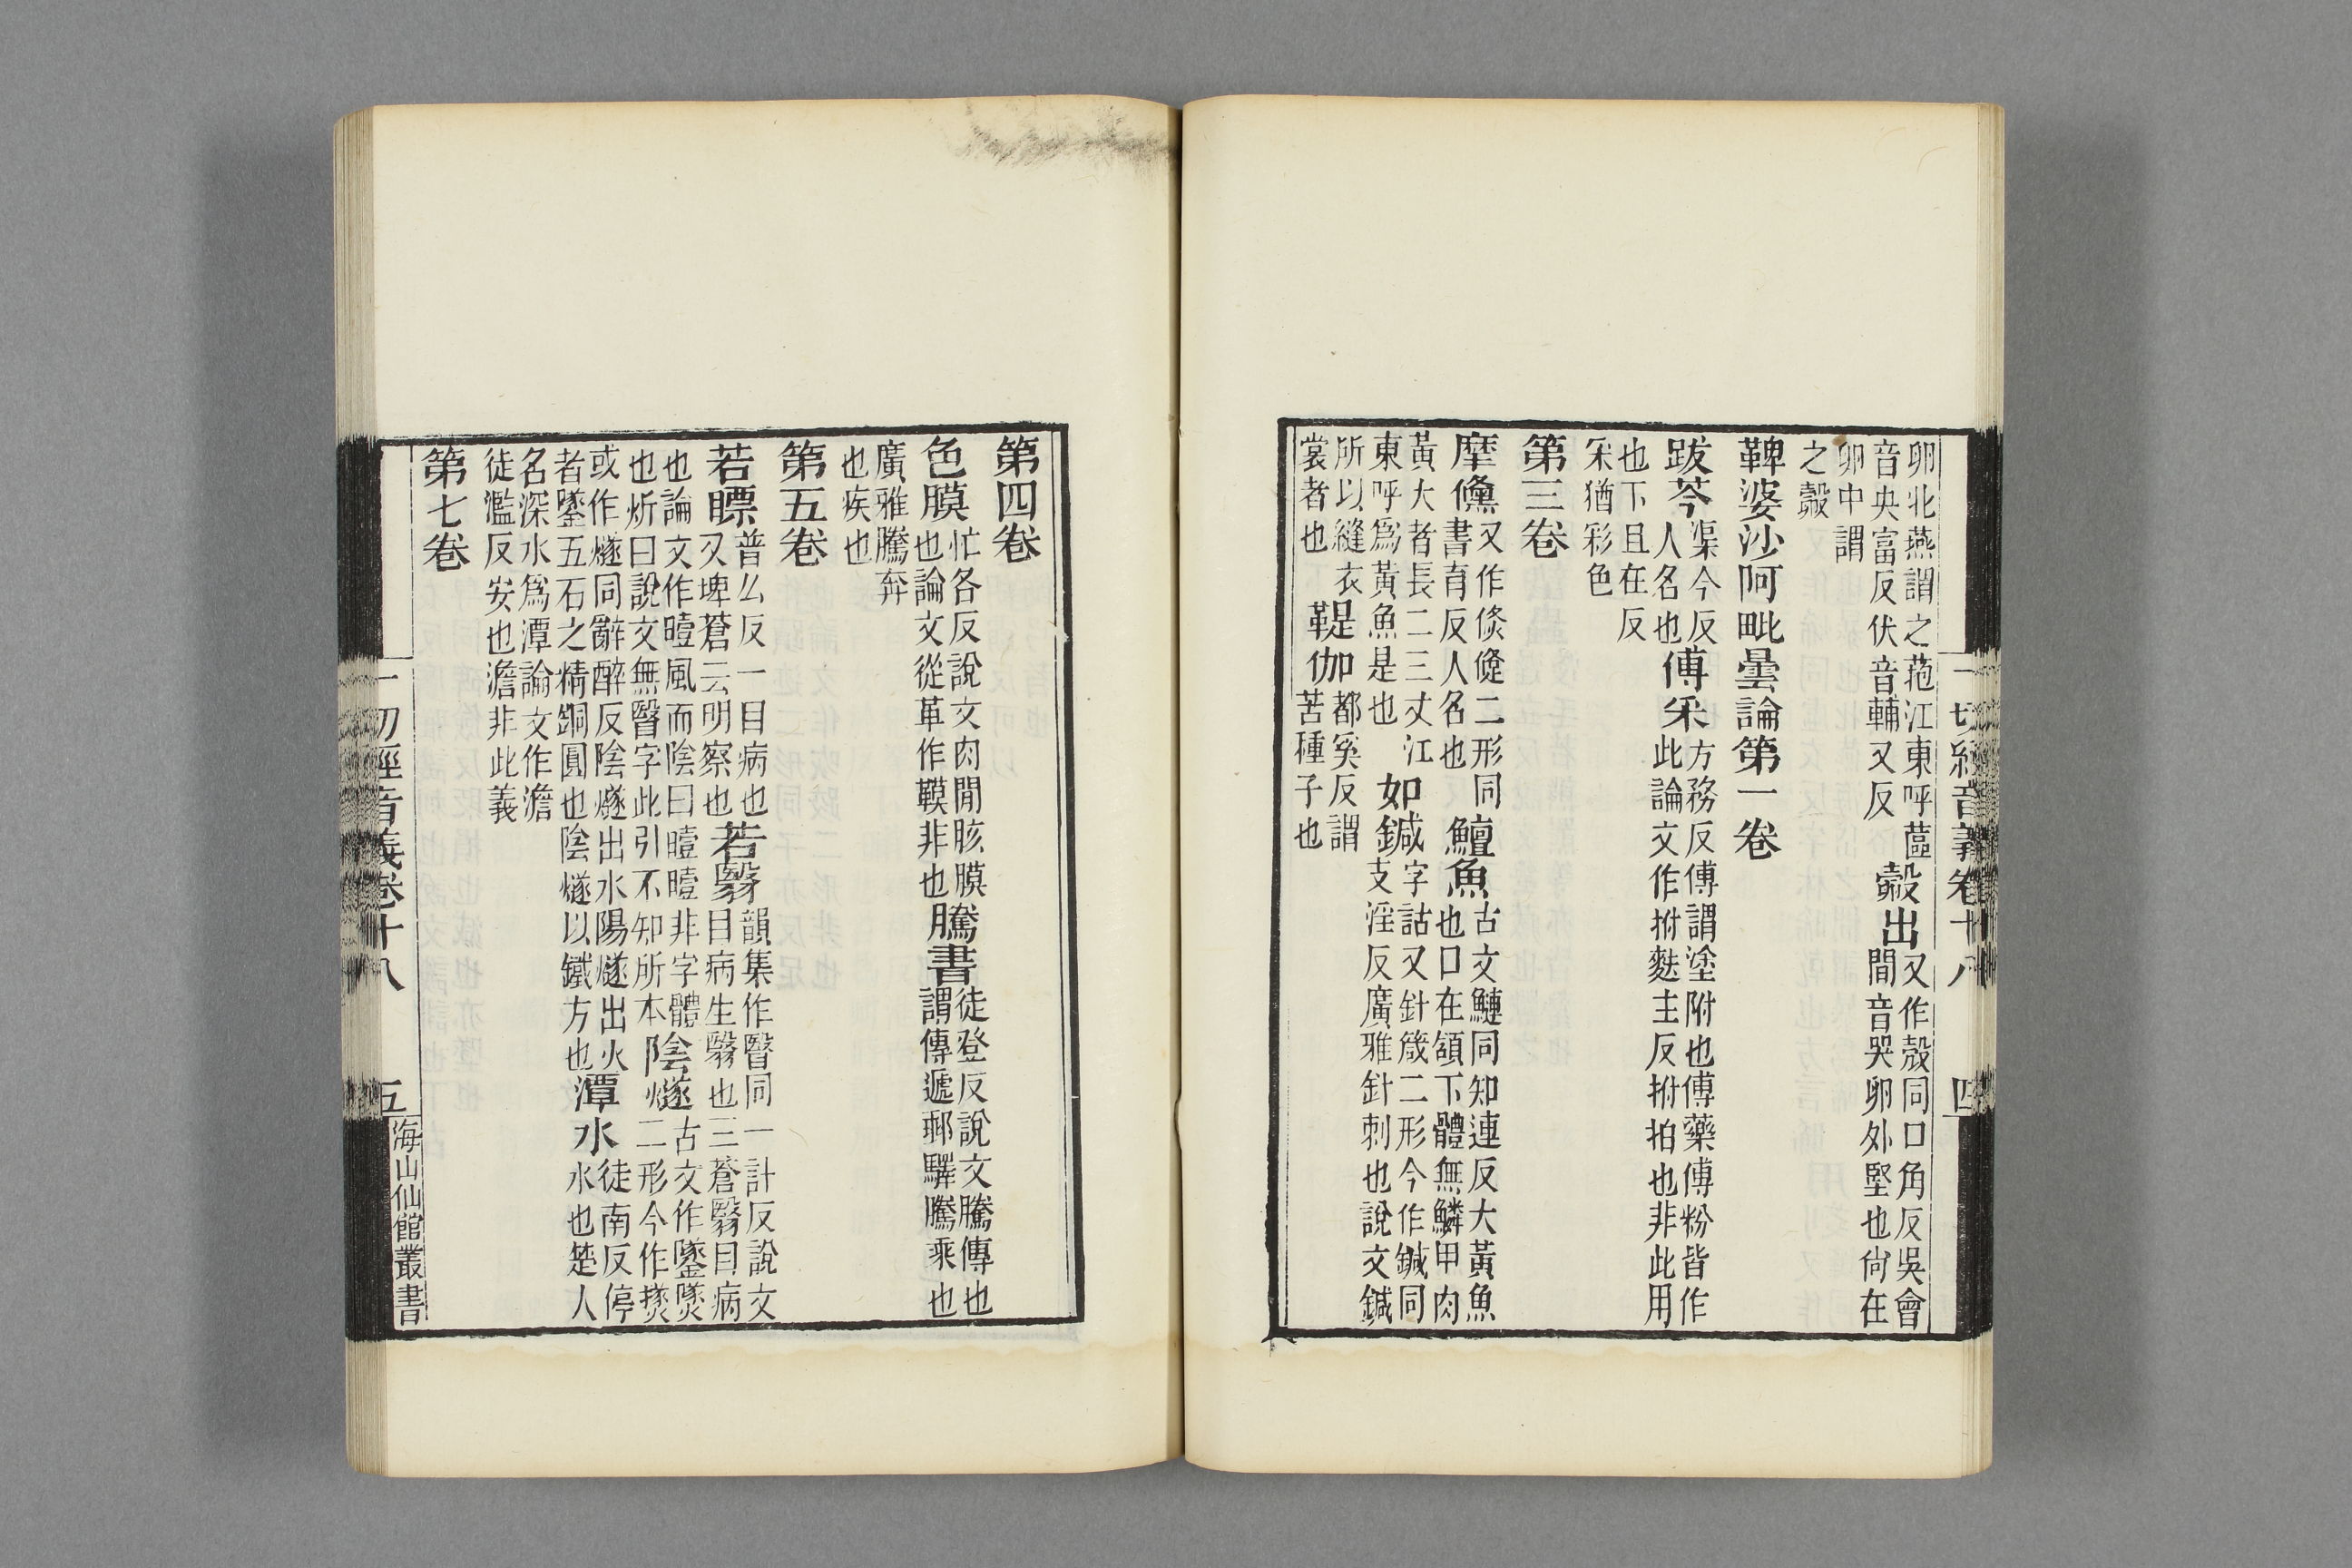 一切經音義卷十八 四
卵北燕謂之菢江東呼蓲
音央富反伏音輔又反
㲉出
又作殻同口角反吳會
間音哭卵外堅也尙在
卵中謂
之㲉
鞞婆沙阿毗曇論第一卷
跋芩
渠今反
人名也
傅采
方務反傅謂塗附也傅藥傅粉皆作
此論文作拊麩主反拊拍也非此用
也下且在反
采猶彩色
第三卷
摩儵
又作倏二形同
書育反人名也
鱣魚
古文鰱同知連反大黃魚
也口在頷下體無鱗甲肉
黃大者長二三丈江
東呼爲黃魚是也
如鍼
字詁又針箴二形今作鍼同
支淫反廣雅針刺也說文鍼
所以縫衣
裳者也
鞮伽
都奚反謂
苦種子也
第四卷
色膜
忙各反說文肉閒胲膜
也論文從革作鞾非也
騰書
徒登反說文騰傳也
謂傳遞郵驛騰乘也
廣雅騰奔
也疾也
第五卷
若瞟
普么反一目病也
又埤蒼云明察也
若翳
韻集作瞖同一計反說文
目病生翳也三蒼翳目病
也論文作曀風而陰曰曀曀非字體
也炘曰說文無瞖字此引不知所本
陰燧
古文作䥙墜
二形今作㷭
或作燧同辭醉反陰燧出水陽燧出火
者䥙五石之精銅圓也陰燧以鐵方也
潭水
徒南反停
水也楚人
名深水爲潭論文作澹
徒濫反安也澹非此義
第七卷
一切經音義卷十八 五 海山仙館叢書